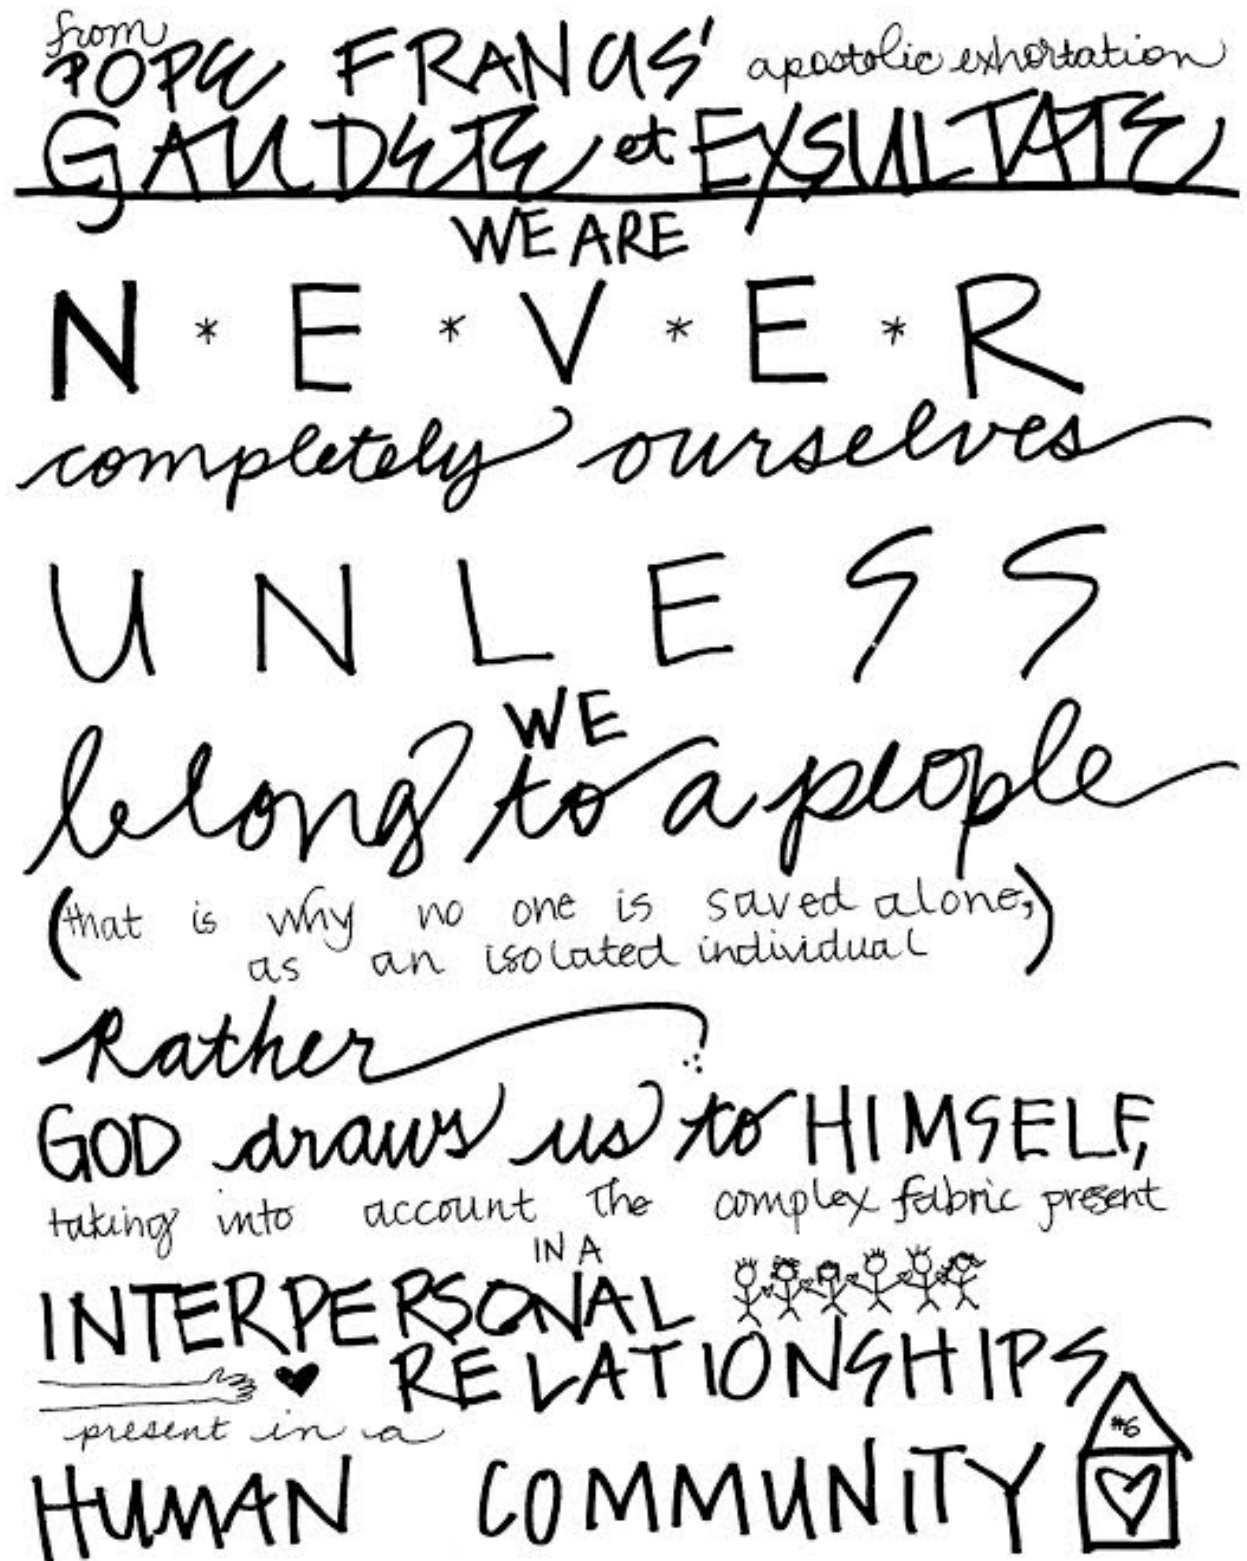 from
POPE FRANCIS' apostolic exhortation
GAUDETE et EXSULTATE
WE ARE
N * E * V * E * R
completely ourselves
UNLESS
WE
belong to a people
(that is why no one is saved alone,
as an isolated individual)
Rather
GOD draws us to HIMSELF,
taking into account the complex fabric present
IN A
INTERPERSONAL
RELATIONSHIPS
present in a
#6
HUMAN COMMUNITY